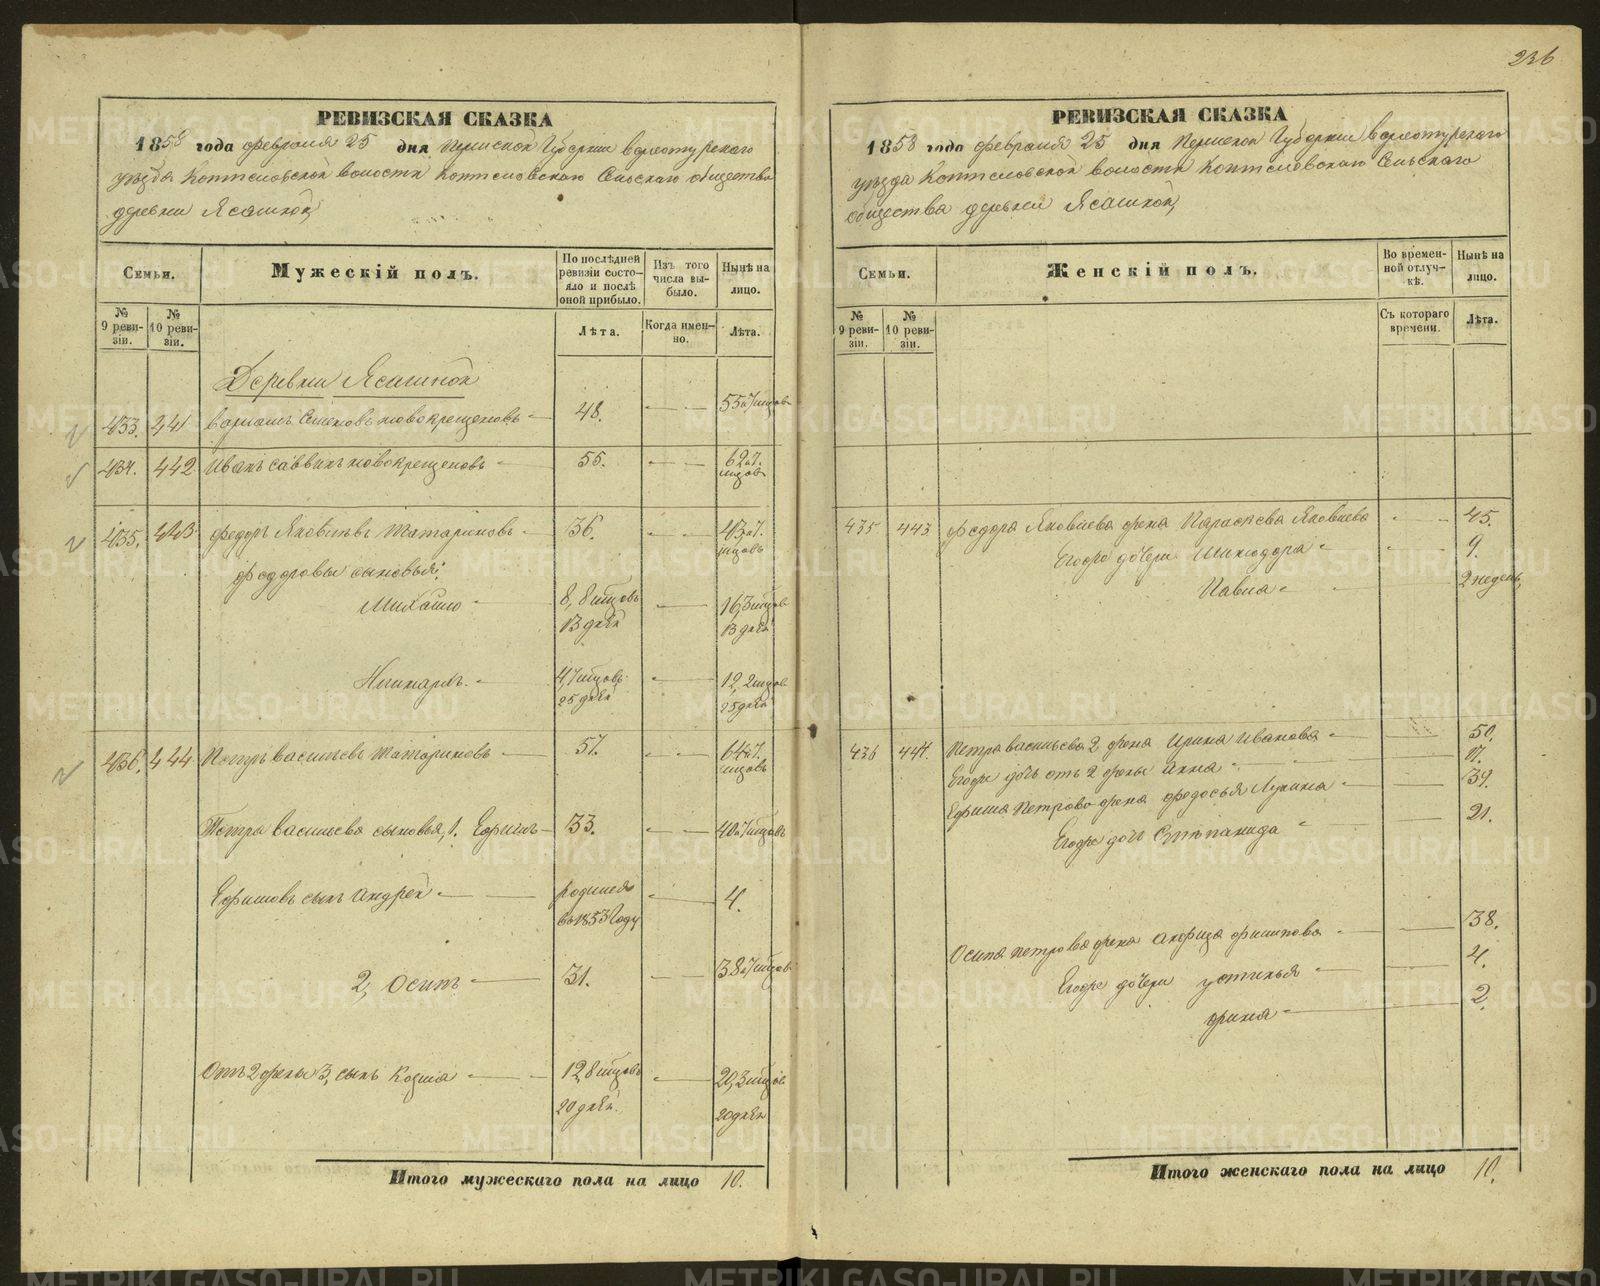 236
РЕВИЗСКАЯ СКАЗКА
1858 года февраля 25 дня Пермской Губернии Верхотурскаго
уезда Коптеловской волости Коптеловскаго Сельскаго общества
деревни Ясашной
Семьи.
Мужескій полъ.
По послѣдней ревизіи состояло и послѣ оной прибыло.
Изъ того числа выбыло.
Нынѣ на лицо.
№ 9 ревизіи.
№ 10 ревизіи.
Лѣта.
Когда именно.
Лѣта.
Деревни Ясашной
433. 441 Варламъ Семеновъ Новокрещеновъ 48. 55 7 мцовъ
434. 442 Иванъ Саввинъ Новокрещеновъ 55. 62 7. мцовъ
435. 443 Федоръ Яковлевъ Татариновъ 36. 43 7. мцовъ
Федоровы сыновья:
Михайло 8, 8 мцовъ 13 дней 16, 3 мцов 13 дней
4, 7 мцовъ 25 дней 12, 2 мцов 25 дней
436. 444 Петръ Васильевъ Татариновъ 57. 64 7. мцовъ
Петра Васильева сыновья, 1. Ефимъ 33. 40 7 мцовъ
Ефимовъ сынъ Андрей родился въ 1853 году 4.
2, Осипъ 31. 38 7 мцов
Отъ 2 жены 3, сынъ Козма 12, 8 мцовъ 20 дней. 20, 3 мцов 20 дней
Итого мужескаго пола на лицо 10.
РЕВИЗСКАЯ СКАЗКА
1858 года февраля 25 дня Пермской Губернии Верхотурскаго
уезда Коптеловской волости Коптеловскаго Сельскаго
общества деревни Ясашной
Семьи.
Женскій полъ.
Во временной отлучкѣ.
Нынѣ на лицо.
№ 9 ревизіи.
№ 10 ревизіи.
Съ котораго времени.
Лѣта.
435 443 Федора Яковлева жена Параскева Яковлева 45.
Егоже дочери 9.
Павла 2 недель
436 444. Петра Васильева 2 жена Ирина Иванова 50.
Егоже дочь отъ 2 жены Анна 17.
Ефима Петрова жена Федосья Лукина 39.
Егоже дочь Степанида 21.
Осипа Петрова жена Анфиза Филипова 38.
Егоже дочери Устинья 4.
Орина 2.
Итого женскаго пола на лицо 10.
METRIKI.GASO-URAL.RU